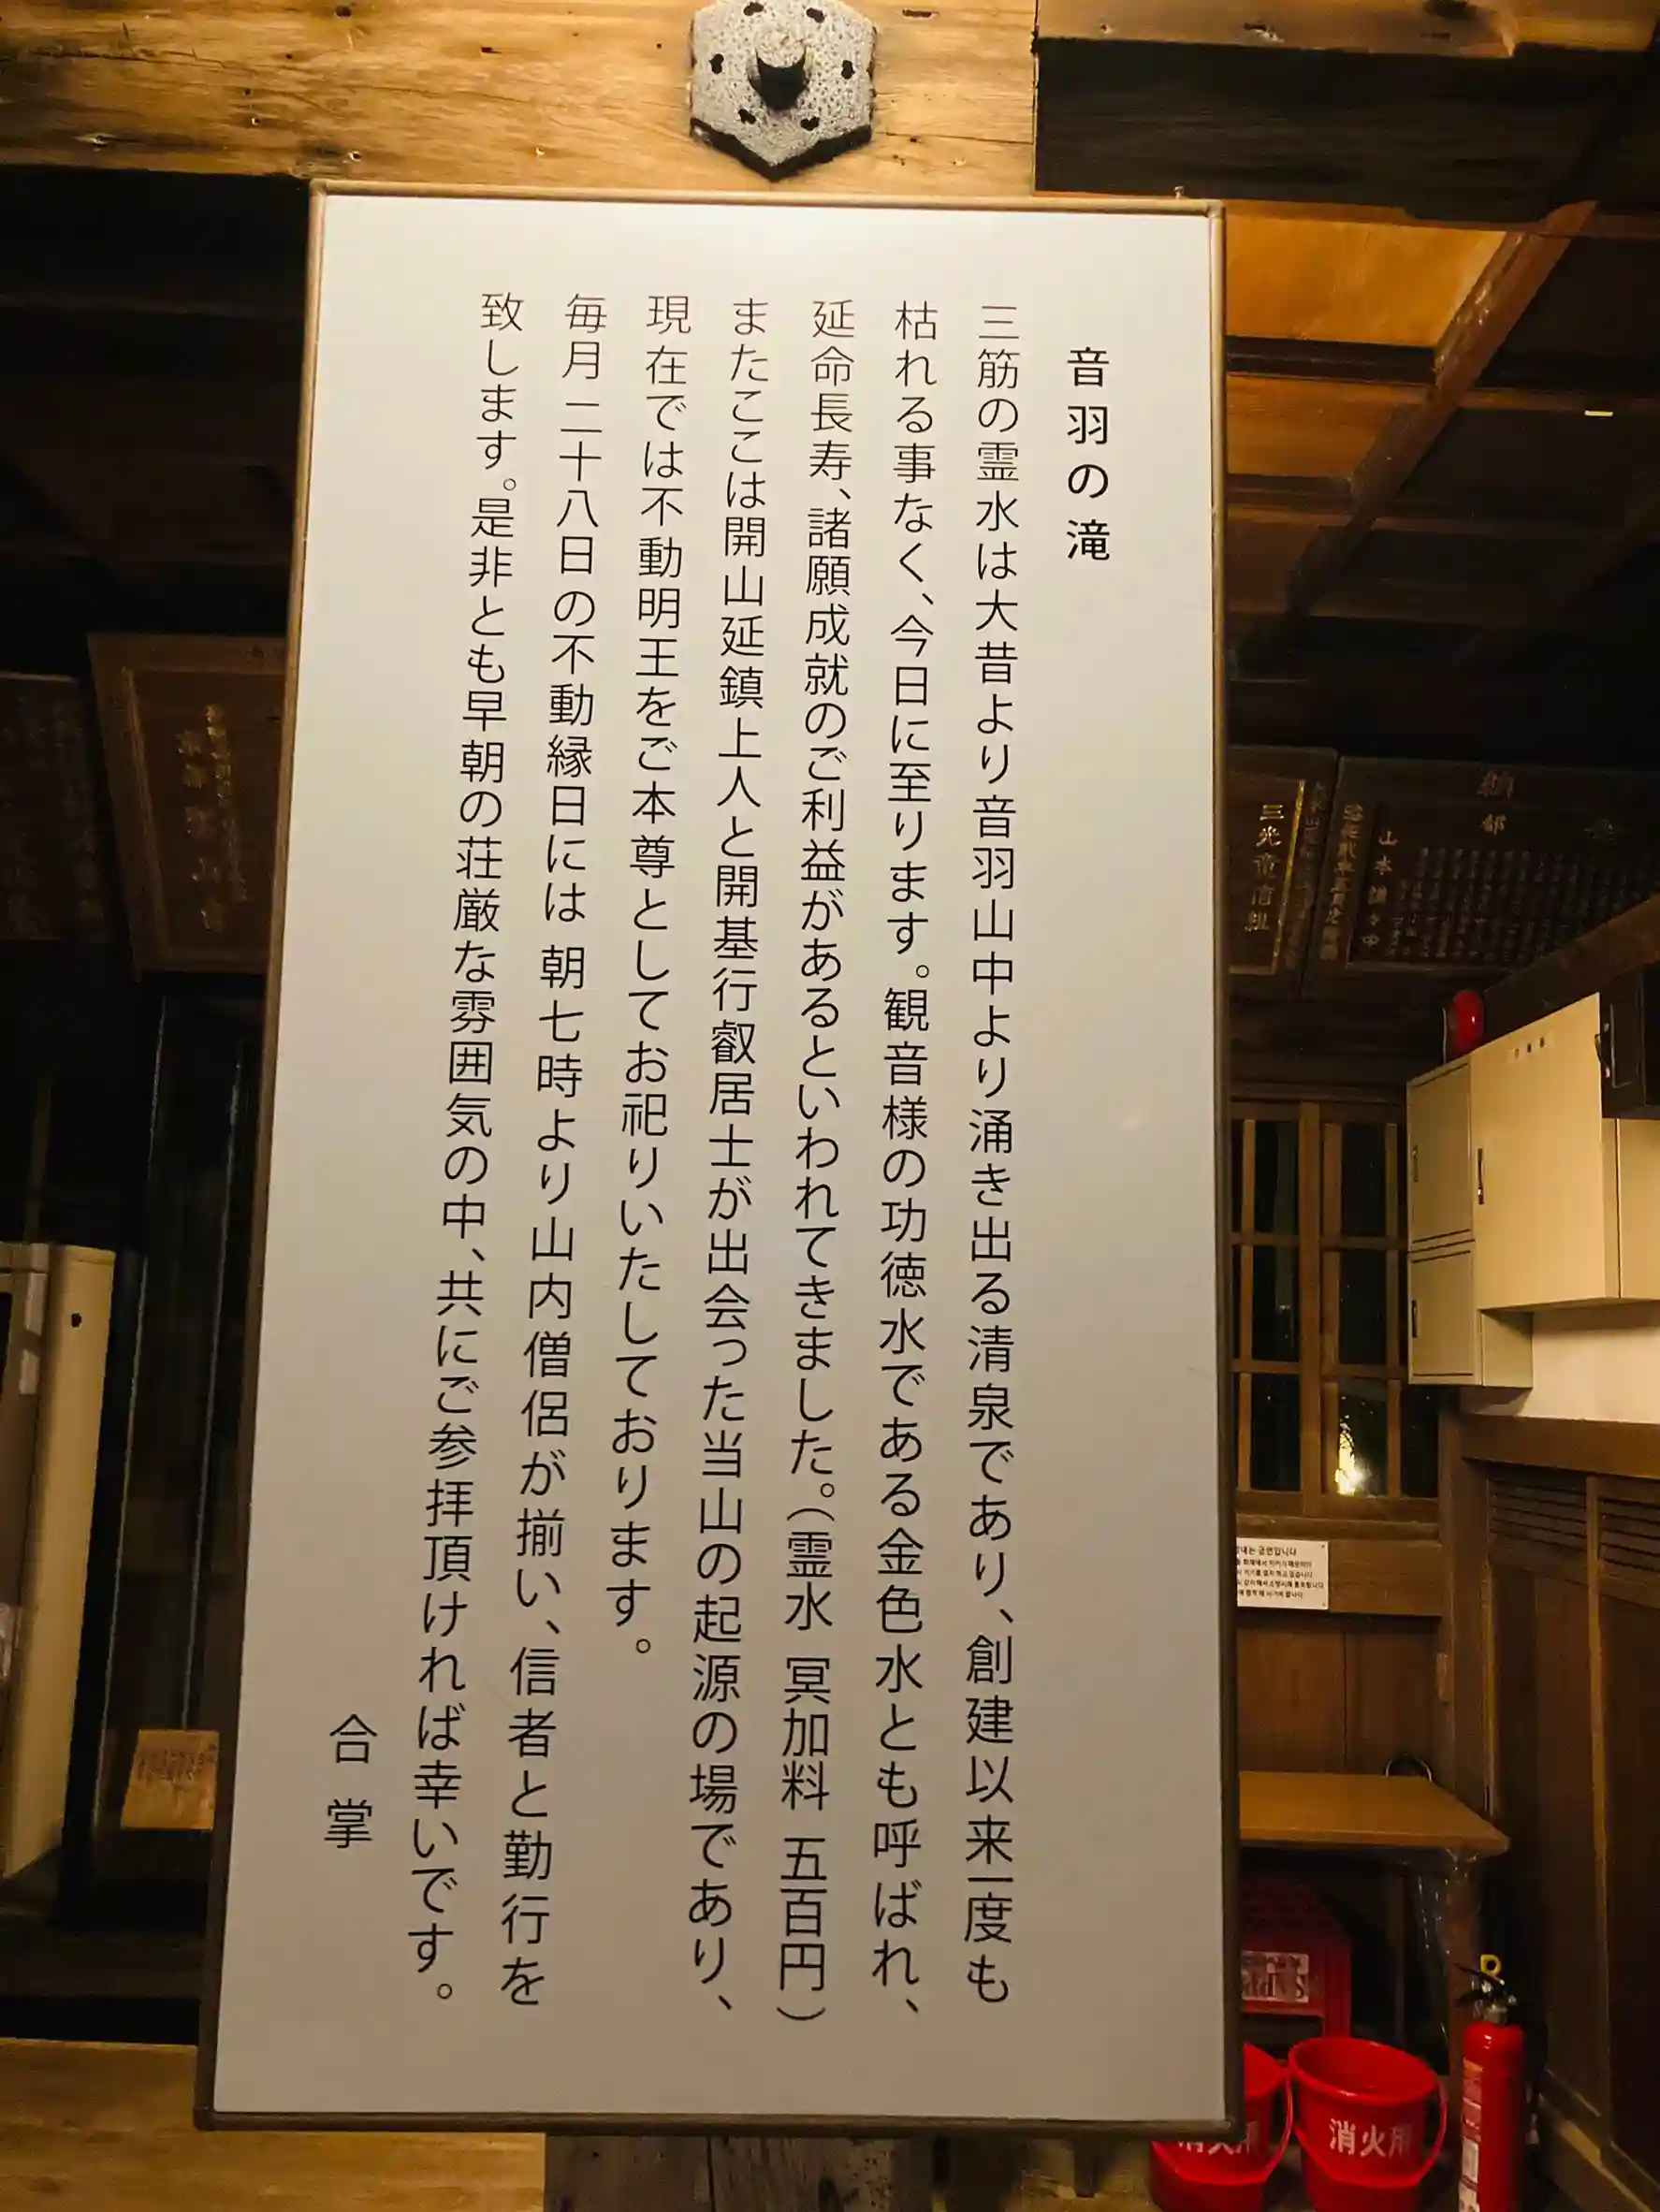 音羽の滝
三筋の霊水は大昔より音羽山中より涌き出る清泉であり、創建以来一度も
枯れる事なく、今日に至ります。観音様の功徳水である金色水とも呼ばれ、
延命長寿、諸願成就のご利益があるといわれてきました。（霊水 冥加料 五百円）
またここは開山延鎮上人と開基行叡居士が出会った当山の起源の場であり、
現在では不動明王をご本尊としてお祀りいたしております。
毎月二十八日の不動縁日には 朝七時より山内僧侶が揃い、信者と勤行を
致します。是非とも早朝の荘厳な雰囲気の中、共にご参拝頂ければ幸いです。
合掌
山本
消火用
消火用